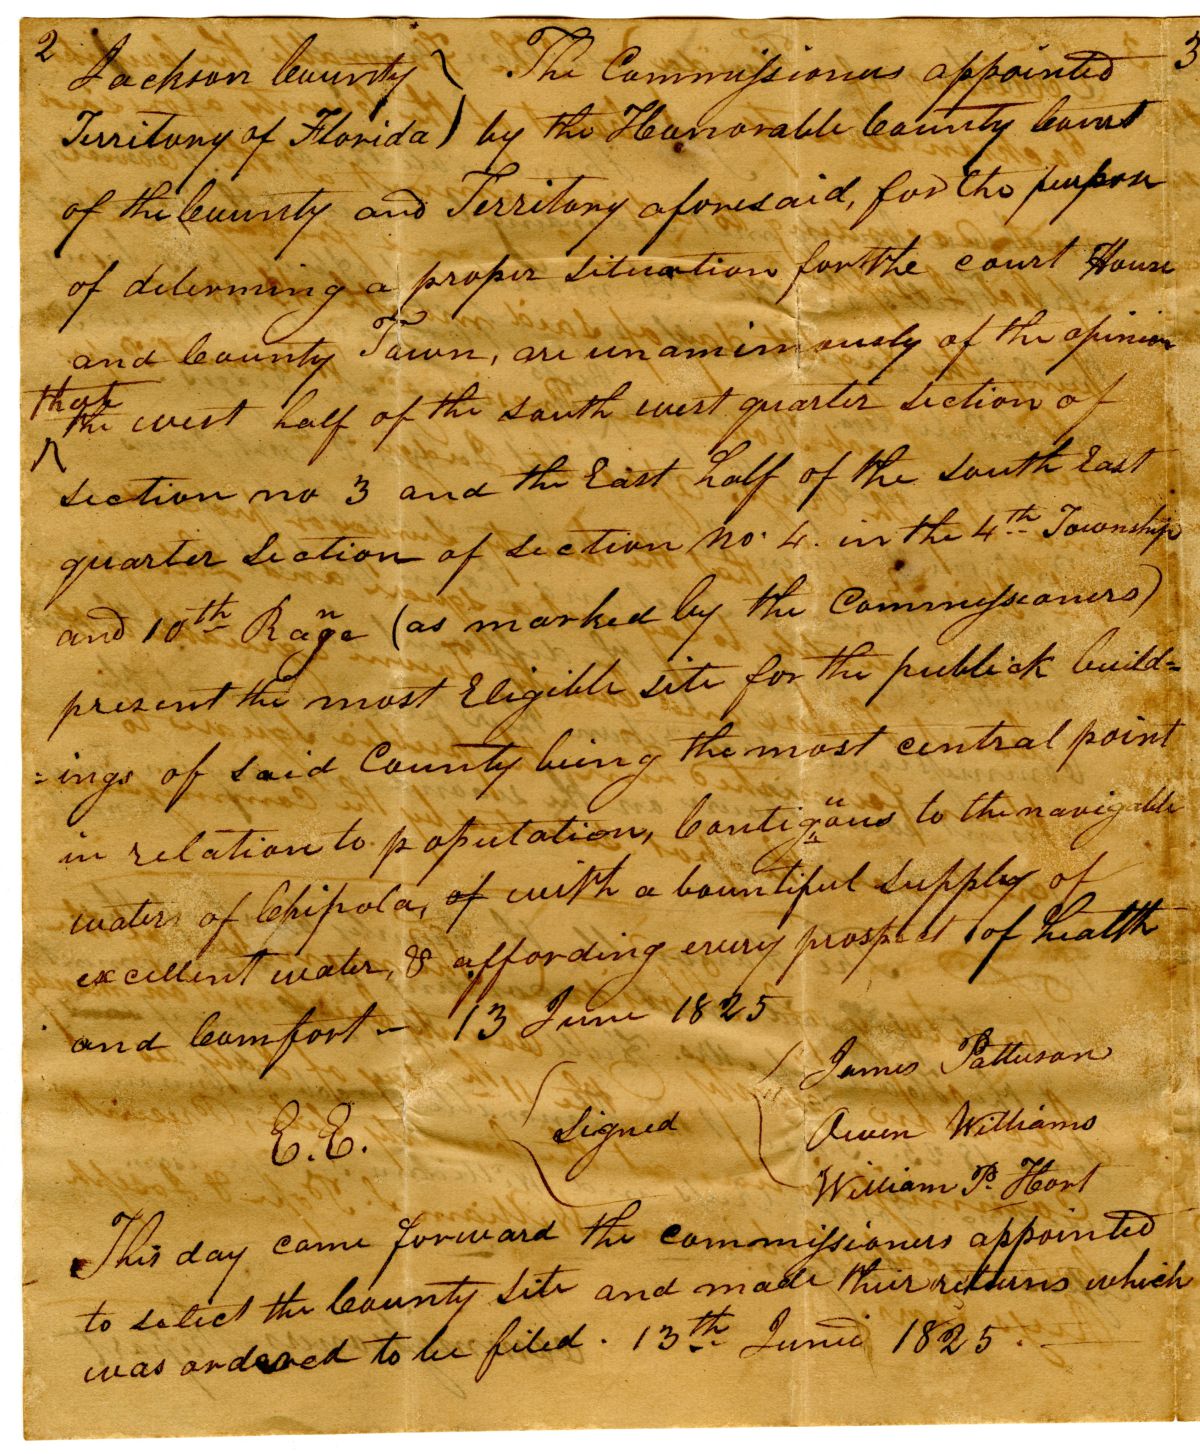 2
3
Jackson County ) The Commissioners appointed
Territory of Florida ) by the Honorable County Court
of the County and Territory aforesaid, for the purpose
of determing a proper situation for the court House
and County Town, are unamimously of the opinion
that
the west half of the south west quarter section of
section no 3 and the East half of the South East
quarter Section of section No. 4. in the 4th Township
and 10th Range (as marked by the Commissioners)
present the most Eligible site for the publick build=
=ings of said County being the most central point
in relation to population, Contiguous to the navigable
waters of Chipola, of with a bountiful supply of
excellent water, & affording every prospect of health
and Comfort – 13 June 1825
James Patterson
E.E. Signed Owen Williams
William P. Hort
This day came forward the commissioners appointed
to select the County Site and made their returns which
was ordered to be filed. 13th June 1825. –